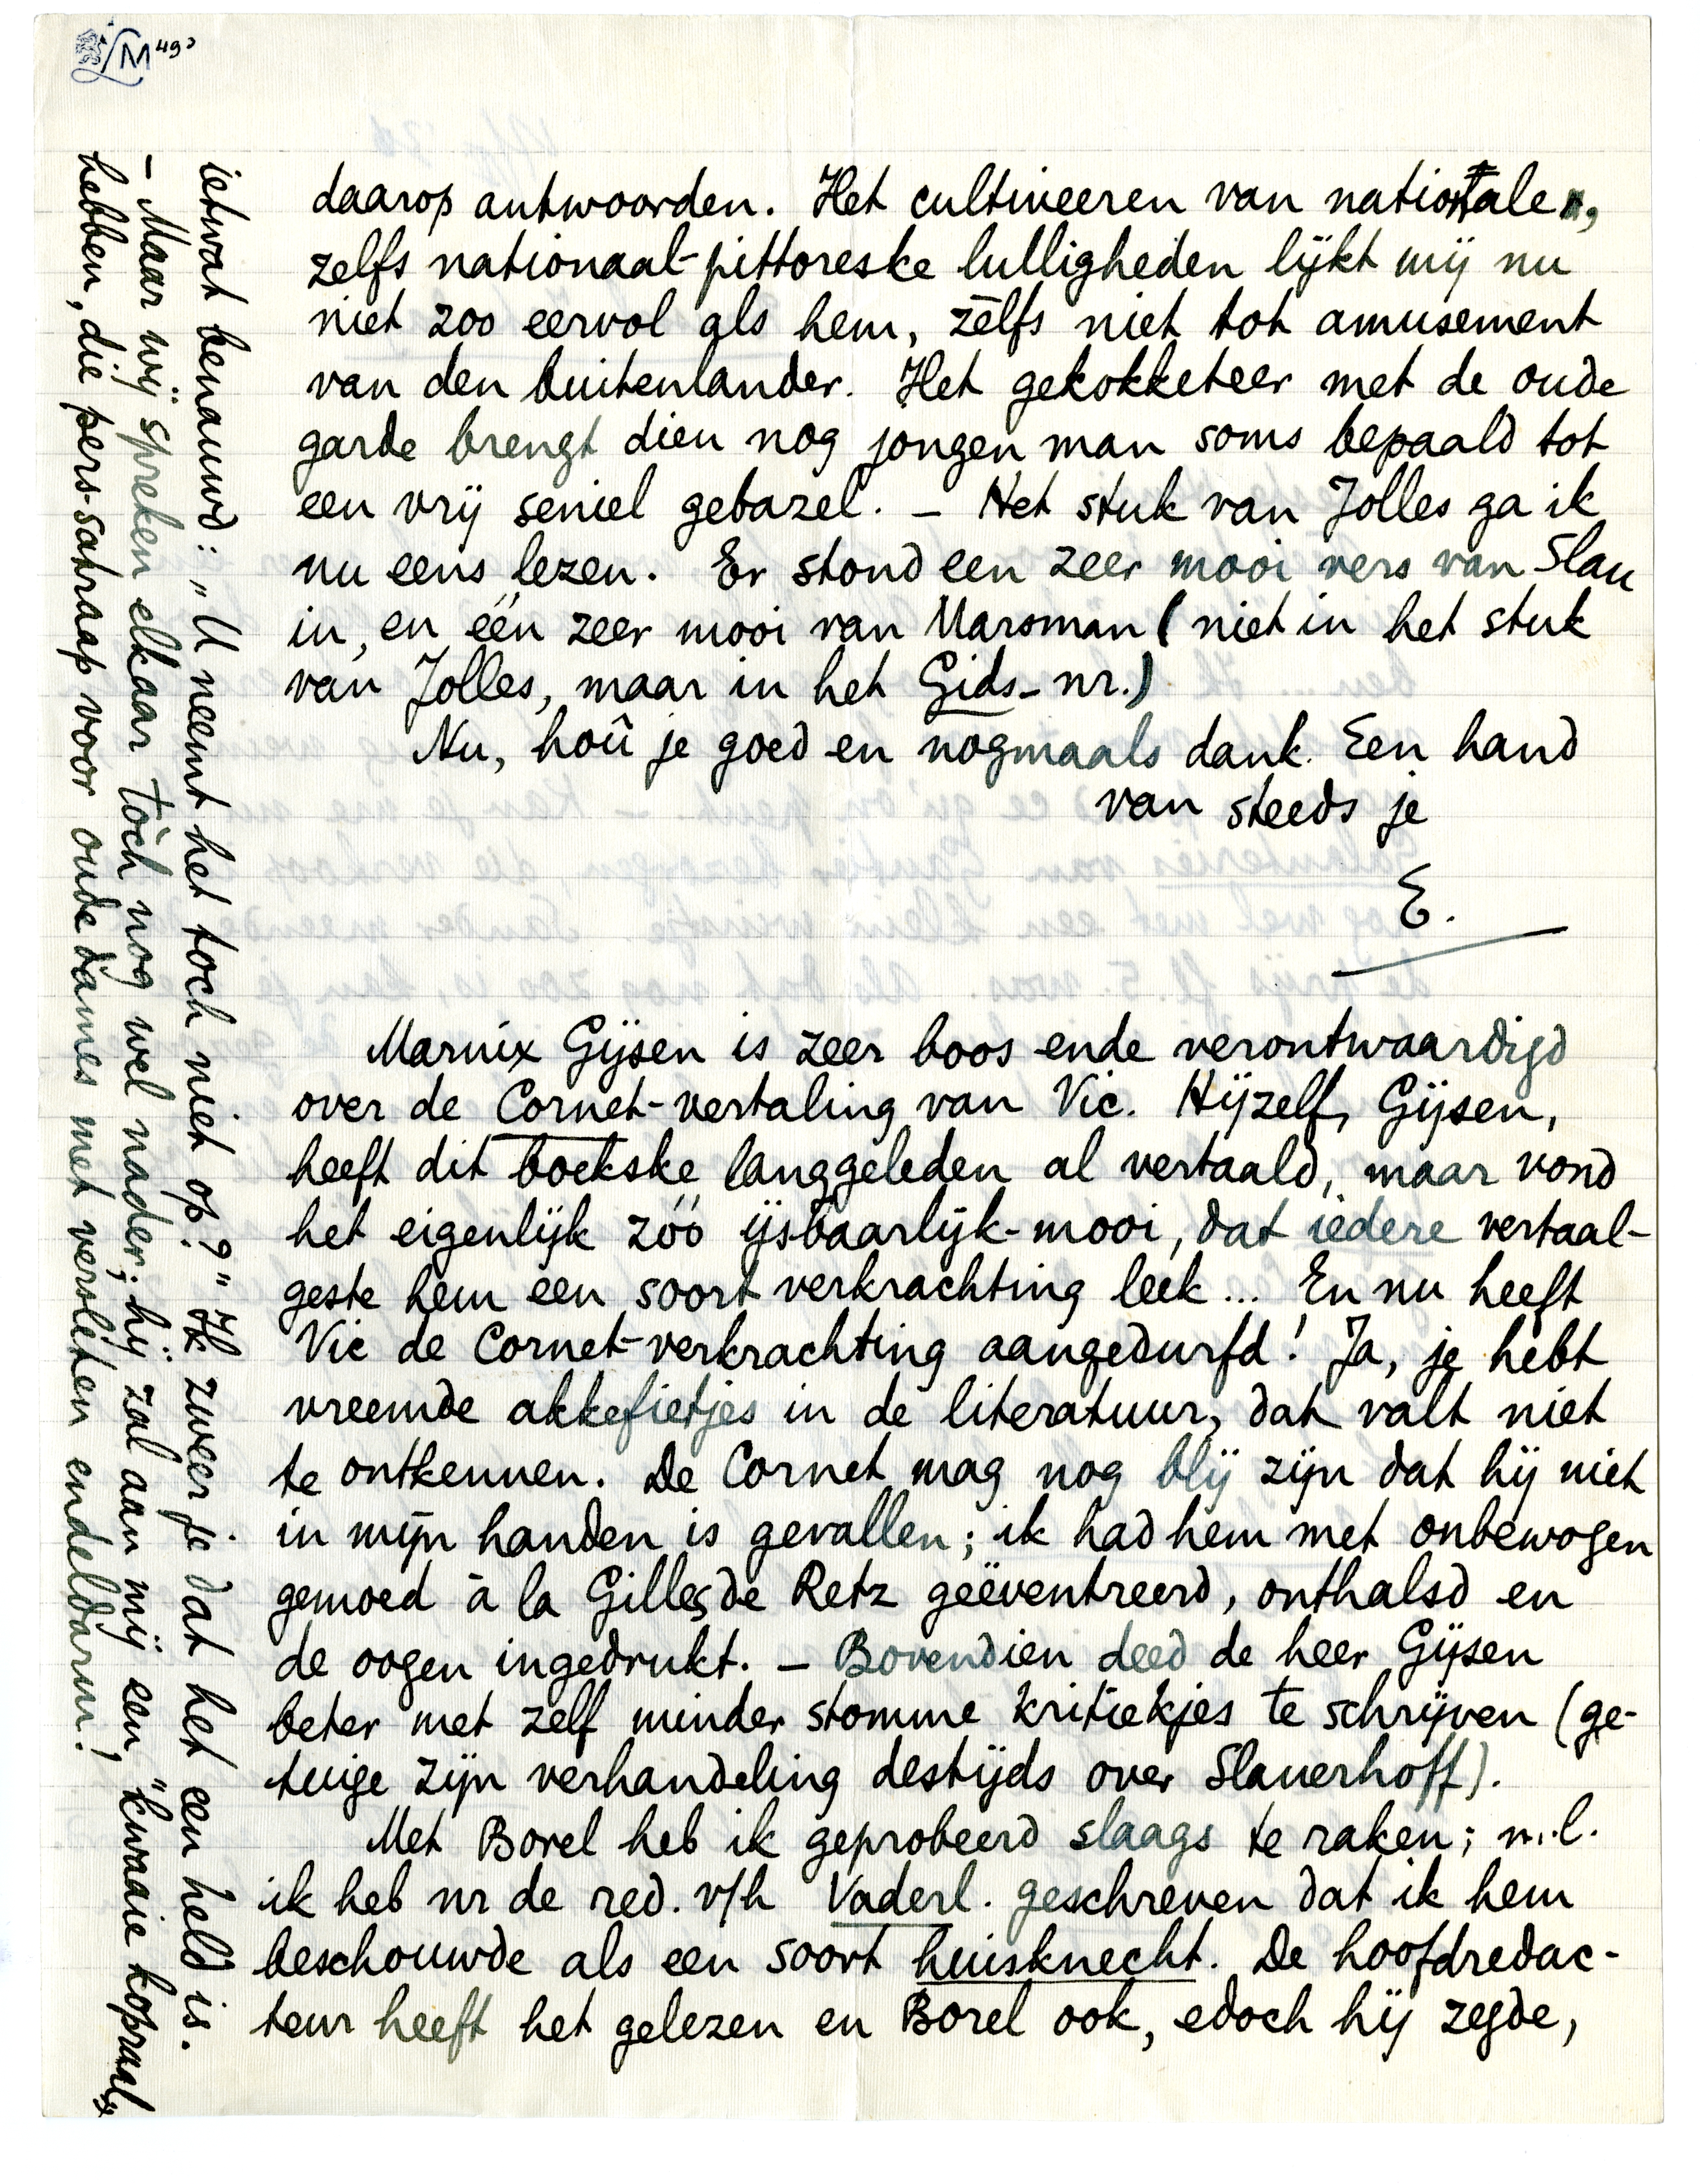 daarop antwoorden. Het cultiveeren van nationale,
zelfs nationaal-pittoreske lulligheden lijkt mij nu
niet zoo eervol als hem, zèlfs niet tot amusement
van den buitenlander. Het gekokketeer met de oude
garde brengt dien nog jongen man soms bepaald tot
een vrij seniel gebazel. – Het stuk van Jolles ga ik
nu eens lezen. Er stond een zeer mooi vers van Slau
in, en één zeer mooi van Marsman (niet in het stuk
van Jolles, maar in het Gids-nr.)
Nu, hoû je goed en nogmaals dank. Een hand
van steeds je
E.
Marnix Gijsen is zeer boos ende verontwaardigd
over de Cornet-vertaling van Vic. Hijzelf, Gijsen,
heeft dit boekske langgeleden al vertaald, maar vond
het eigenlijk zóó ijsbaarlijk-mooi, dat iedere vertaal-
geste hem een soort verkrachting leek... En nu heeft
Vic de Cornet-verkrachting aangedurfd! Ja, je hebt
vreemde akkefietjes in de literatuur, dat valt niet
te ontkennen. De Cornet mag nog blij zijn dat hij niet
in mijn handen is gevallen; ik had hem met onbewogen
gemoed à la Gilles de Retz geëventreerd, onthalsd en
de oogen ingedrukt. – Bovendien deed de heer Gijsen
beter met zelf minder stomme kritiekjes te schrijven (ge-
tuige zijn verhandeling destijds over Slauerhoff).
Met Borel heb ik geprobeerd slaags te raken; n.l.
ik heb nr de red. v/h Vaderl. geschreven dat ik hem
beschouwde als een soort huisknecht. De hoofdredac-
teur heeft het gelezen en Borel ook, edoch hij zegde,
ietwat benauwd: „U neemt het toch niet op?" Ik zweer je dat het een held is.
– Maar wij spreken elkaar tòch nog wel nader; hij zal aan mij een „kwaaie kopraal"
hebben, die pers-satraap voor oude dames met versleten endeldarm!